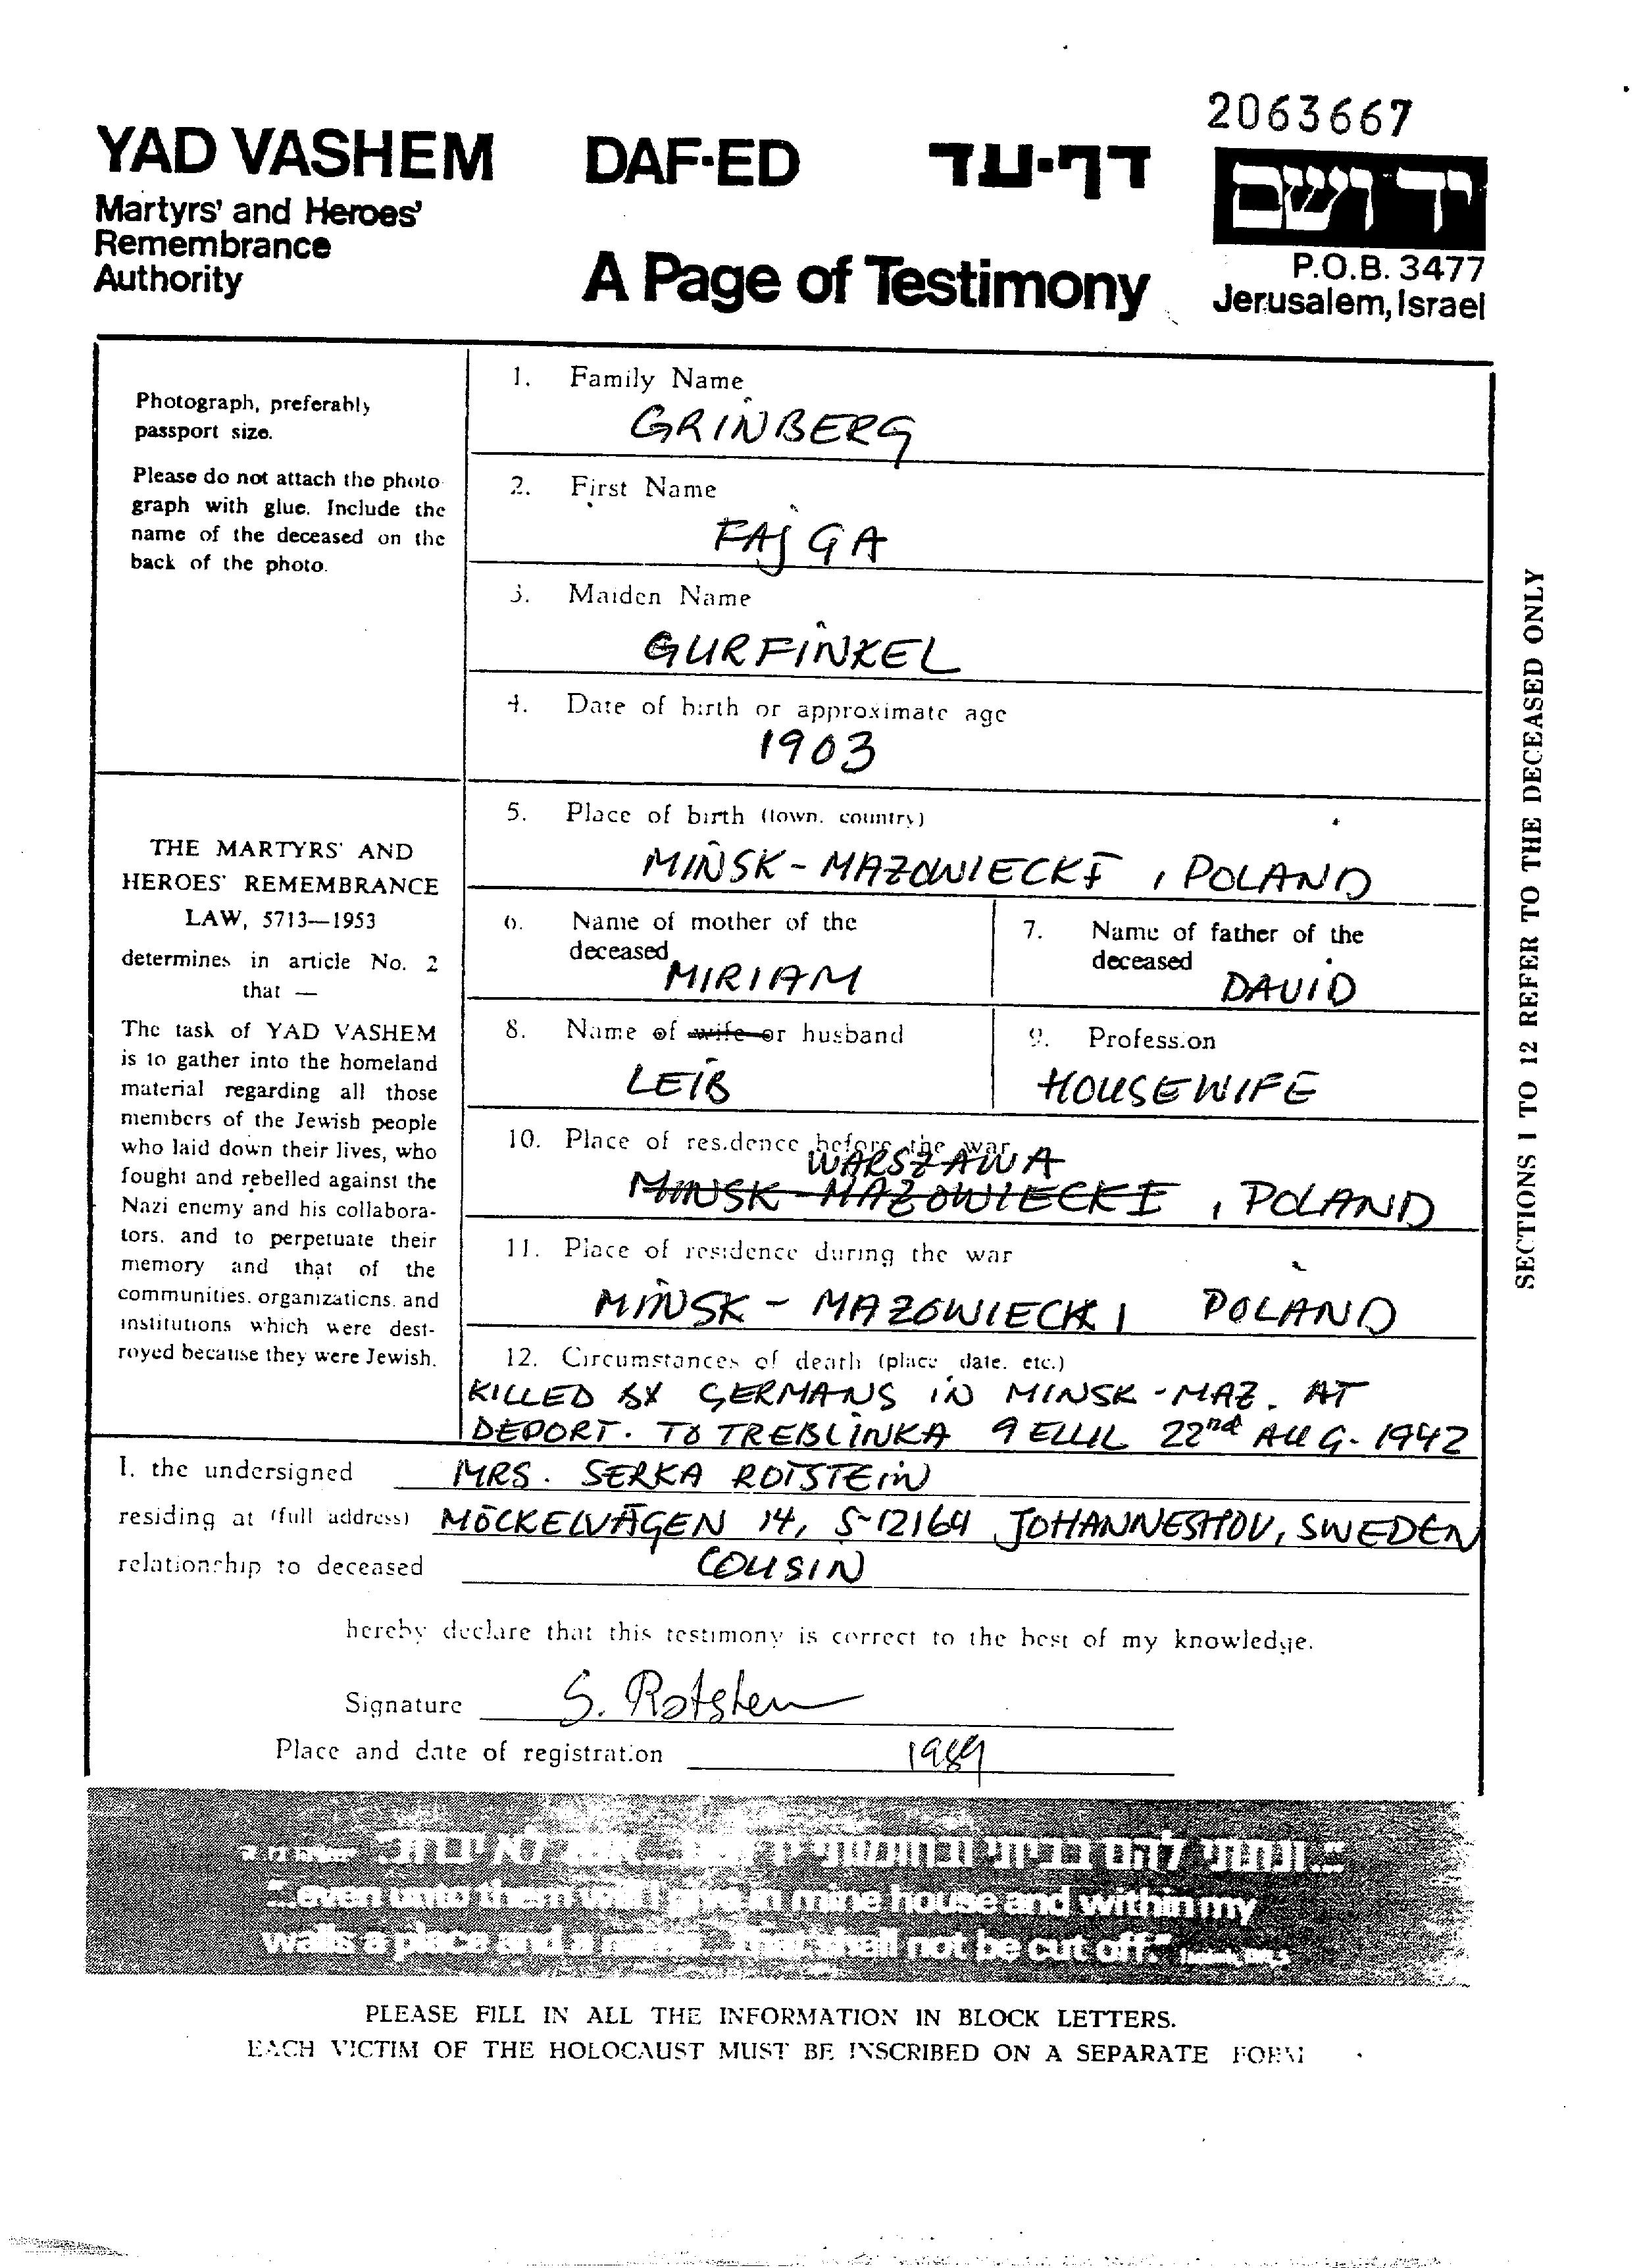 2063667
YAD VASHEM
DAF-ED
דף-עד
יד ושם
Martyrs' and Heroes'
Remembrance
Authority
A Page of Testimony
P.O.B. 3477
Jerusalem, Israel
Photograph, preferably
passport size.
Please do not attach the photo-
graph with glue. Include the
name of the deceased on the
back of the photo.
THE MARTYRS' AND
HEROES' REMEMBRANCE
LAW, 5713—1953
determines in article No. 2
that —
The task of YAD VASHEM
is to gather into the homeland
material regarding all those
members of the Jewish people
who laid down their lives, who
fought and rebelled against the
Nazi enemy and his collabora-
tors, and to perpetuate their
memory and that of the
communities, organizations, and
institutions which were dest-
royed because they were Jewish.
1. Family Name
GRINBERG
2. First Name
FAJGA
3. Maiden Name
GURFINKEL
4. Date of birth or approximate age
1903
5. Place of birth (town, country)
MIŃSK - MAZOWIECKI, POLAND
6. Name of mother of the
deceased
MIRIAM
7. Name of father of the
deceased
DAVID
8. Name of wife or husband
LEIB
9. Profession
HOUSEWIFE
10. Place of residence before the war
WARSZAWA
MINSK - MAZOWIECKI, POLAND
11. Place of residence during the war
MIŃSK - MAZOWIECKI POLAND
12. Circumstances of death (place, date, etc.)
KILLED BY GERMANS IN MINSK - MAZ. AT
DEPORT. TO TREBLINKA 9 ELUL 22nd AUG. 1942
I, the undersigned MRS. SERKA ROTSTEIN
residing at (full address) MÖCKELVÄGEN 14, S-12164 JOHANNESHOV, SWEDEN
relationship to deceased COUSIN
hereby declare that this testimony is correct to the best of my knowledge.
Signature S. Rotstein
Place and date of registration 1989
SECTIONS 1 TO 12 REFER TO THE DECEASED ONLY
"...ונתתי להם בביתי ובחומותי יד ושם... אשר לא יכרת"
"...even unto them will I give in mine house and within my
walls a place and a name...that shall not be cut off"
PLEASE FILL IN ALL THE INFORMATION IN BLOCK LETTERS.
EACH VICTIM OF THE HOLOCAUST MUST BE INSCRIBED ON A SEPARATE FORM